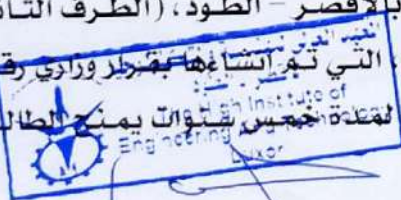 بالأقصر – الطود، (الطرف الثا
، التي تم إنشاءها بقرار وزاري رق
لمدة خمس سنوات يمنح الطال
The High Institute of
Engineering
Luxor